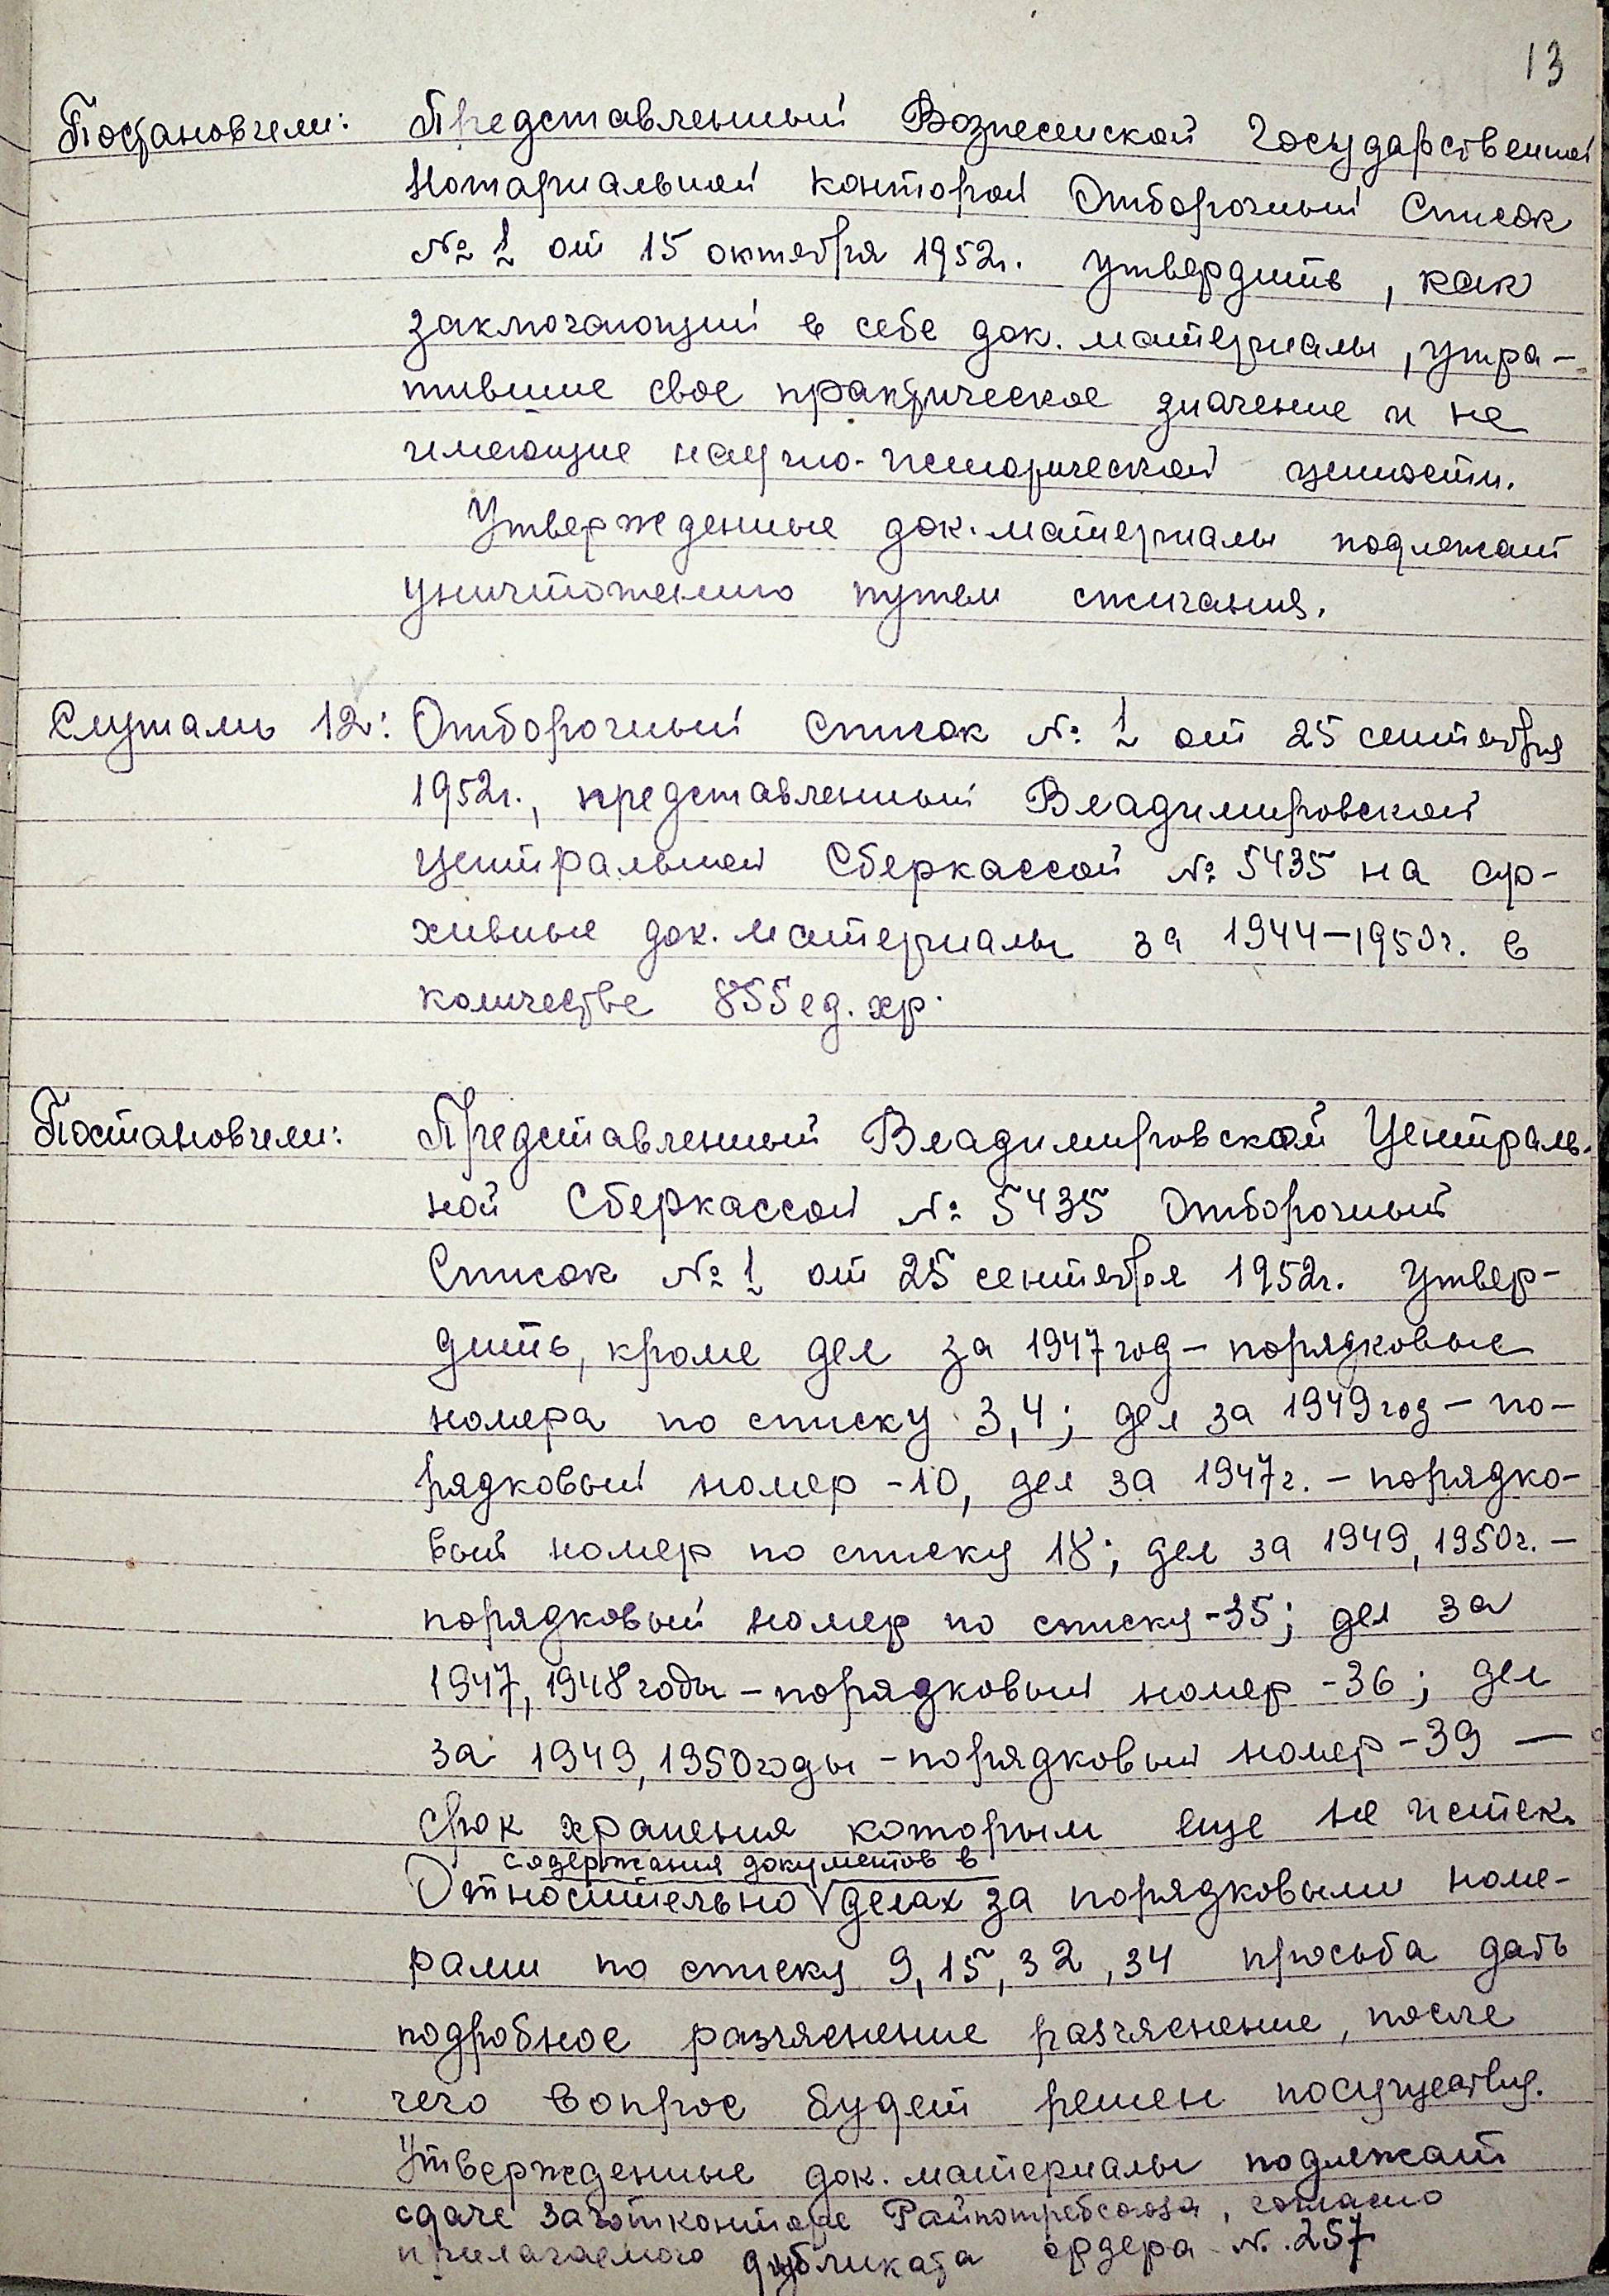 13
Постановили: Представленный Вознесенской Государственной
Нотариальной конторой Отборочный Список
№ 1 от 15 октября 1952г. утвердить, как
заключающий в себе док. материалы, утра-
тившие свое практическое значение и не
имеющие научно-исторической ценности.
Утвержденные док. материалы подлежат
уничтожению путем сжигания.
Слушали 12: Отборочный Список № 1 от 25 сентября
1952г., представленный Владимировской
Центральной Сберкассой № 5435 на ар-
хивные док. материалы за 1944-1950г. в
количестве 855 ед. хр.
Постановили: Представленный Владимировской Централь-
ной Сберкассой № 5435 Отборочный
Список № 1 от 25 сентября 1952г. утвер-
дить, кроме дел за 1947 год - порядковые
номера по списку 3,4; дел за 1949 год - по-
рядковый номер -10, дел за 1947г. - порядко-
вый номер по списку 18; дел за 1949, 1950г. -
порядковый номер по списку -35; дел за
1947, 1948 годы - порядковый номер -36; дел
за 1949, 1950 годы - порядковый номер -39 —
срок хранения которым еще не истек.
содержания документов в
Относительно делах за порядковыми номе-
рами по списку 9, 15, 32, 34 просьба дать
подробное разъяснение разъяснение, после
чего вопрос будет решен посуществу.
Утвержденные док. материалы подлежат
сдаче Заготконторе Райпотребсоюза, согласно
прилагаемого дубликата ордера № 257